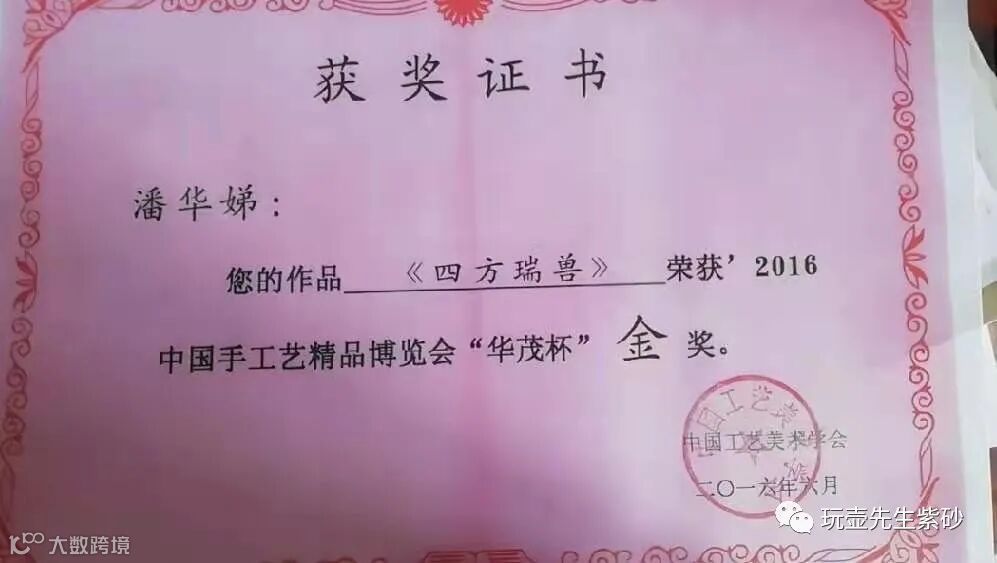 获奖证书
潘华娣：
您的作品《四方瑞兽》荣获’2016
中国手工艺精品博览会“华茂杯”金奖。
中国工艺美术学会
二〇一六年六月
玩壶先生紫砂
大数跨境